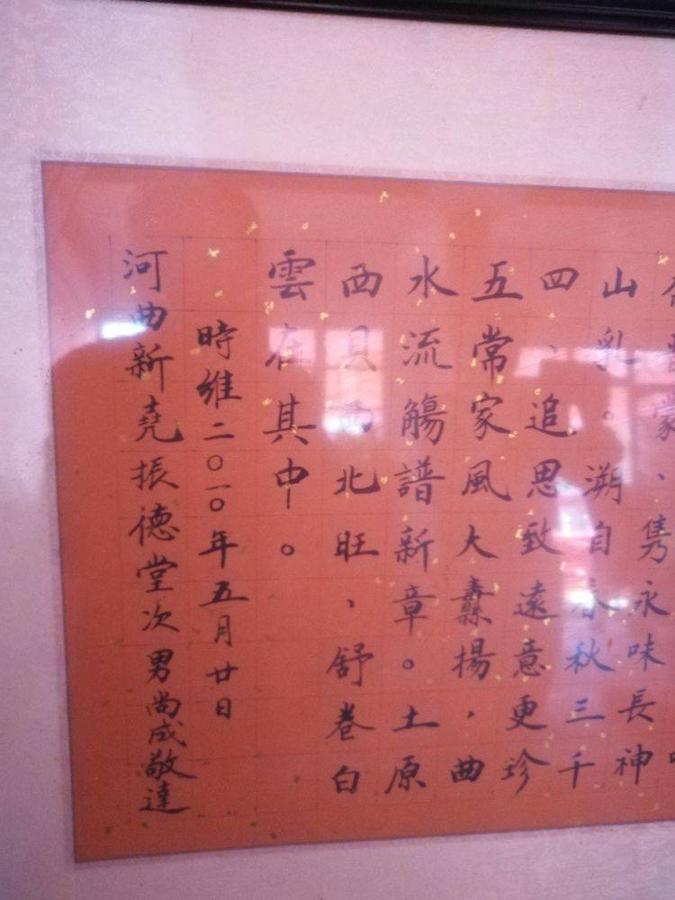 蒙、雋永味長神
山乳。溯自春秋三千
四、追思致遠意更珍
五常家風大纛揚，曲
水流觴譜新章。土原
西北旺，舒卷白
雲在其中。
時維二〇一〇年五月廿日
河曲新堯振德堂次男尚成敬達